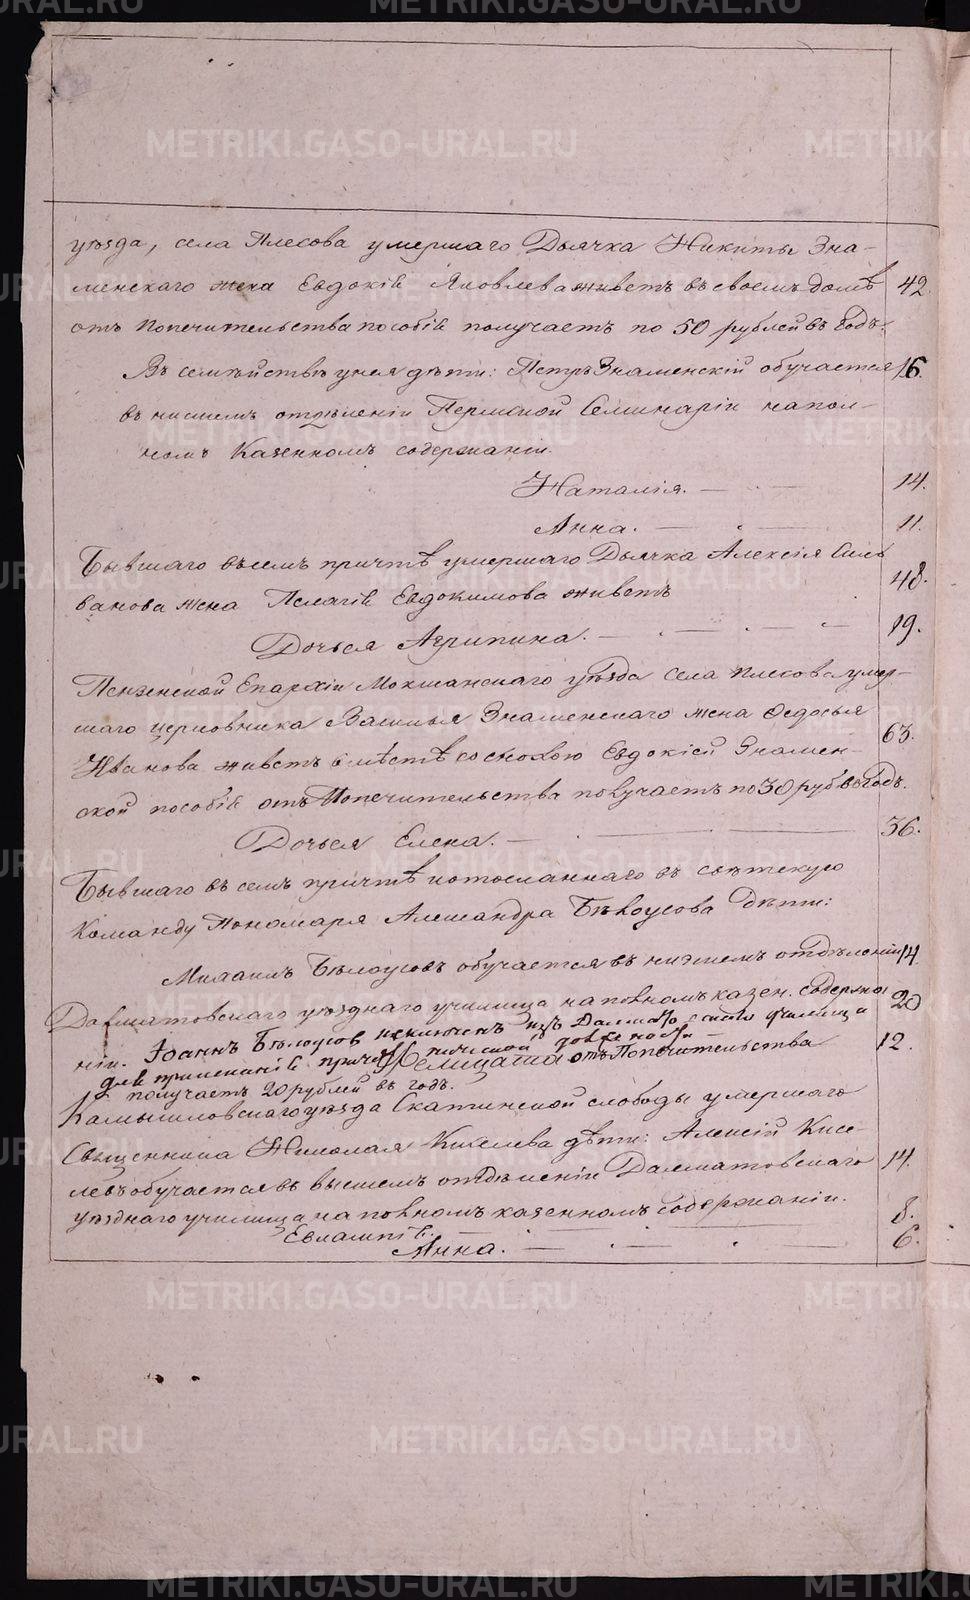 уѣзда, села Плесова умершаго Дьячка Никиты Зна-
менскаго жена Евдокія Яковлева живетъ въ своемъ домѣ 42.
отъ Попечительства пособія получаетъ по 50 рублей въ годъ.
Въ семействѣ у нея дѣти: Петръ Знаменскій обучается 16.
въ нисшемъ отдѣленіи Пермской Семинаріи на пол-
номъ Казенномъ содержаніи.
Наталія. — 14.
Анна. — 11.
Бывшаго въ семъ причтѣ умершаго Дьячка Алексія Силь
ванова жена Пелагія Евдокимова живетъ 48.
Дочь ея Агрипина. — 19.
Пензенской Епархіи Мокшанскаго уѣзда села Плесова умер-
шаго церковника Василья Знаменскаго жена Федосья
Иванова живетъ вмѣстѣ со снохою Евдокіей Знамен- 63.
ской пособія отъ Попечительства получаетъ по 30 руб въ годъ.
Дочь ея Елена. — 36.
Бывшаго въ семъ причтѣ и отосланнаго въ свѣтскую
Команду Пономаря Александра Бѣлоусова дѣти:
Михаилъ Бѣлоусовъ обучается въ низшемъ отдѣленіи 14.
Далматовскаго уѣзднаго училища на полномъ казен. содержа 20
ніи. Іоаннъ Бѣлоусов исключенъ изъ Далматовскаго училища
для пріисканія причетнической должности —
Фелицатиа отъ Попечительства 12.
получаетъ 20 рублей въ годъ.
Камышловскаго уѣзда Скатинской слободы умершаго
Священника Николая Киселева дѣти: Алексій Кисе-
левъ обучается въ высшемъ отдѣленіи Далматовскаго 14.
уѣзднаго училища на полномъ казенномъ содержаніи.
Евлампія. — 8.
Анна. — 6.
METRIKI.GASO-URAL.RU